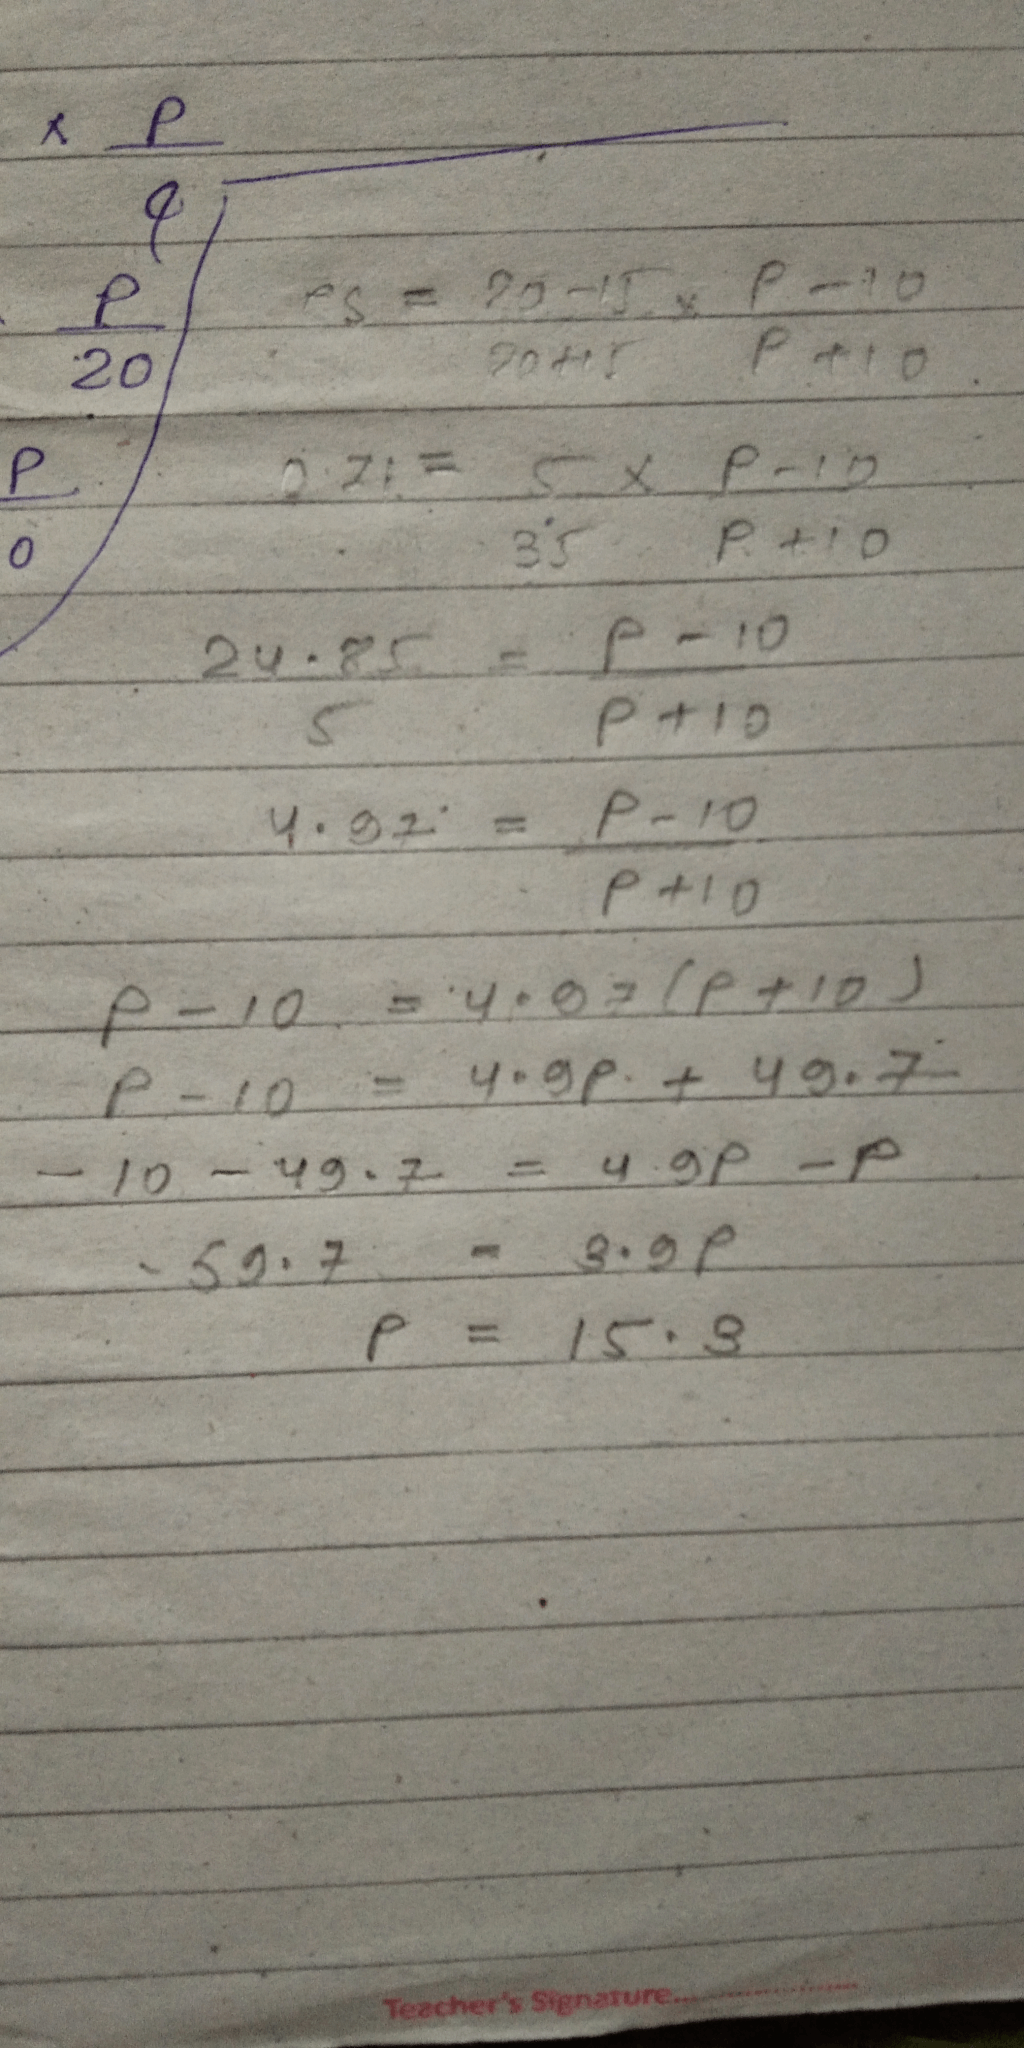 x P
q
P
20
es = 20-15 x P-10
20+15 P+10
P
0
0.71 = 5 x P-10
35 P+10
24.85 = P-10
5 P+10
4.97 = P-10
P+10
P-10 = 4.97(P+10)
P-10 = 4.9P + 49.7
-10 - 49.7 = 4.9P - P
-59.7 = 3.9P
P = 15.3
Teacher's Signature..................